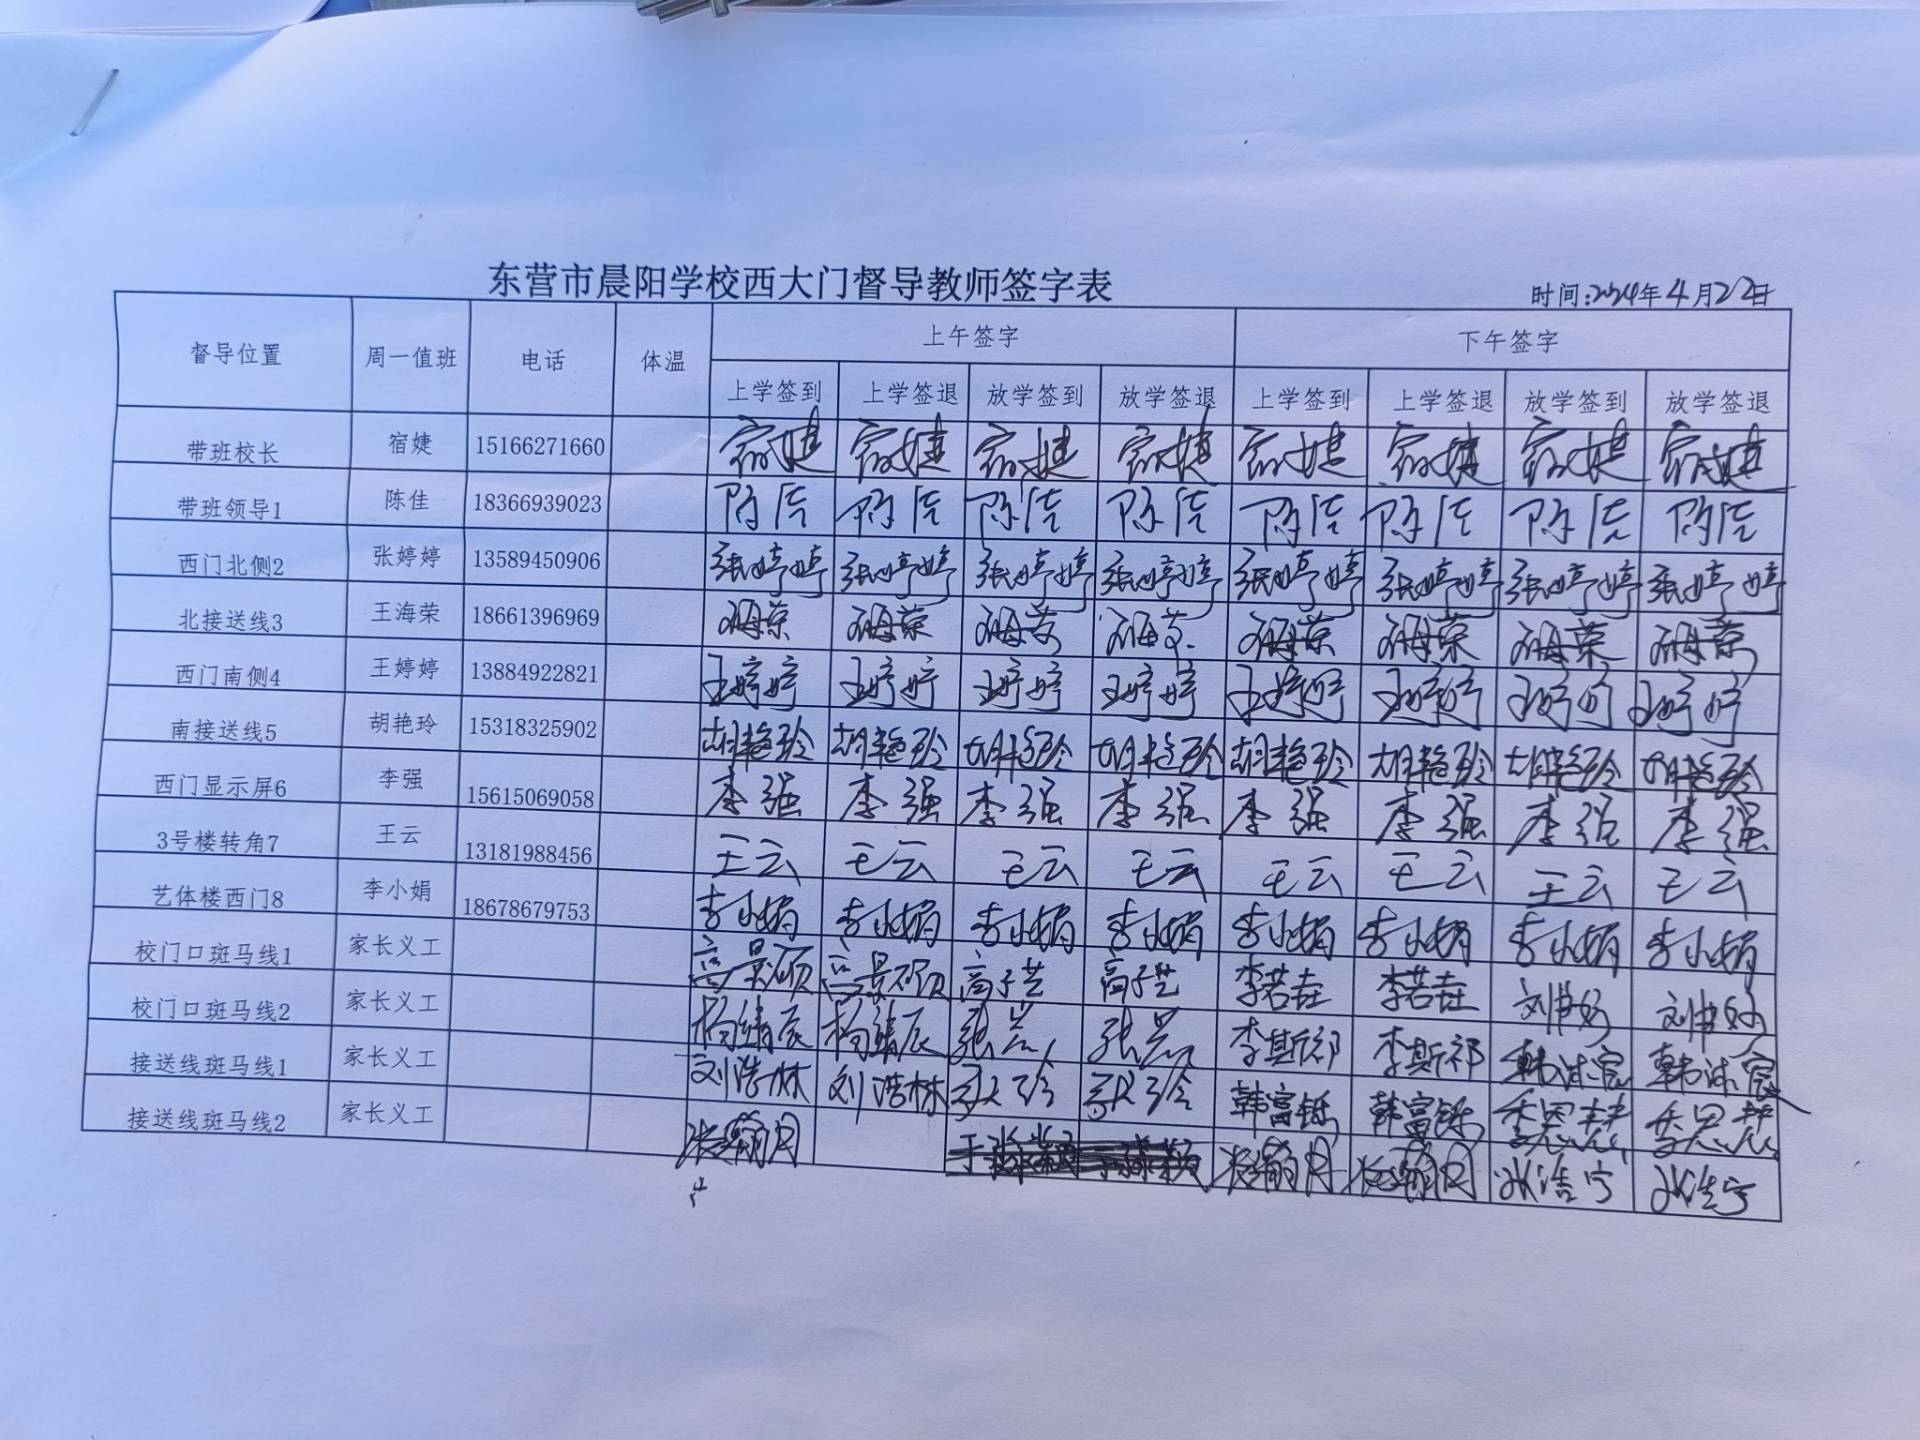 东营市晨阳学校西大门督导教师签字表
时间:2024年4月22日
督导位置 周一值班 电话 体温 上午签字 下午签字
上学签到 上学签退 放学签到 放学签退 上学签到 上学签退 放学签到 放学签退
带班校长 宿婕 15166271660 宿婕 宿婕 宿婕 宿婕 宿婕 宿婕 宿婕 宿婕
带班领导1 陈佳 18366939023 陈佳 陈佳 陈佳 陈佳 陈佳 陈佳 陈佳 陈佳
西门北侧2 张婷婷 13589450906 张婷婷 张婷婷 张婷婷 张婷婷 张婷婷 张婷婷 张婷婷 张婷婷
北接送线3 王海荣 18661396969 王海荣 王海荣 王海荣 王海荣 王海荣 王海荣 王海荣 王海荣
西门南侧4 王婷婷 13884922821 王婷婷 王婷婷 王婷婷 王婷婷 王婷婷 王婷婷 王婷婷 王婷婷
南接送线5 胡艳玲 15318325902 胡艳玲 胡艳玲 胡艳玲 胡艳玲 胡艳玲 胡艳玲 胡艳玲 胡艳玲
西门显示屏6 李强 15615069058 李强 李强 李强 李强 李强 李强 李强 李强
3号楼转角7 王云 13181988456 王云 王云 王云 王云 王云 王云 王云 王云
艺体楼西门8 李小娟 18678679753 李小娟 李小娟 李小娟 李小娟 李小娟 李小娟 李小娟 李小娟
校门口斑马线1 家长义工 高景硕 高景硕 高子芸 高子芸 李若垚 李若垚
校门口斑马线2 家长义工 杨靖辰 杨靖辰 李斯祁 李斯祁 韩沐宸 韩沐宸
接送线斑马线1 家长义工 刘浩林 刘浩林 韩富铄 韩富铄 李思慧 李思慧
接送线斑马线2 家长义工 张浩宁 张浩宁